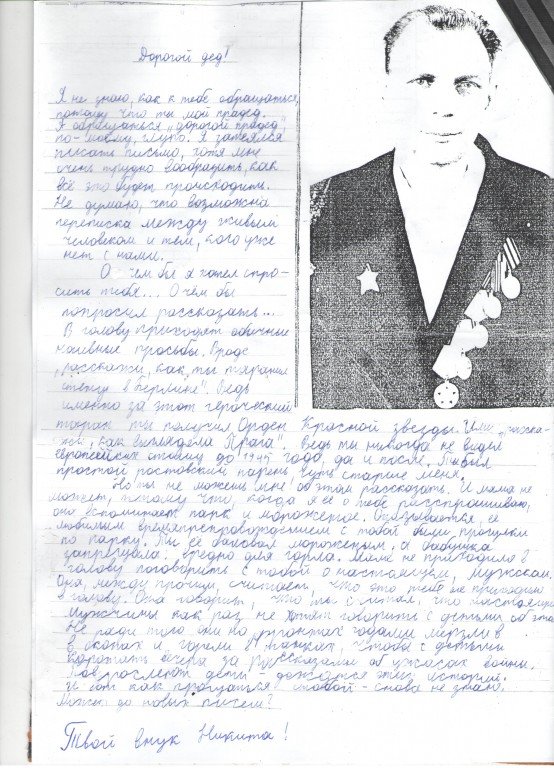 Дорогой дед!
Я не знаю, как к тебе обращаться,
потому что ты мой прадед.
А обращаться „дорогой прадед",
по-моему, глупо. Я затеялся
писать письмо, хотя мне
очень трудно вообразить, как
всё это будет происходить.
Не думаю, что возможна
переписка между живым
человеком и тем, кого уже
нет с нами.
О чем бы я хотел спро-
сить тебя... О чём бы
попросил рассказать...
В голову приходят обычные
наивные просьбы. Вроде
„расскажи, как ты таранил
стену в Берлине". Ведь
именно за этот героический
таран ты получил Орден Красной звезды. Или „расска-
жи, как выглядела Прага". Ведь ты никогда не видел
европейских столиц до 1945 года, да и после. Ты был
простой ростовский парень чуть старше меня.
Но ты не можешь мне об этом рассказать. И мама не
может, потому что, когда я её о тебе расспрашиваю,
она вспоминает парк и мороженое. Оказывается, её
любимым времяпрепровождением с тобой были прогулки
по парку. Ты её баловал мороженым, а бабушка
запрещала: вредно для горла. Маме не приходило в
голову поговорить с тобой о настоящем, мужском.
Она, между прочим, считает, что это тебе не приходило
в голову. Она говорит, что ты считал, что настоящие
мужчины как раз не хотят говорить с детьми об этом.
Не ради того они на фронтах годами мёрзли в
в окопах и горели в танках, чтобы с детьми
коротать вечера за рассказами об ужасах войны.
Повзрослеют дети - дождутся этих историй.
И вот как прощаться с тобой - снова не знаю.
Может, до новых писем?
Твой внук Никита!